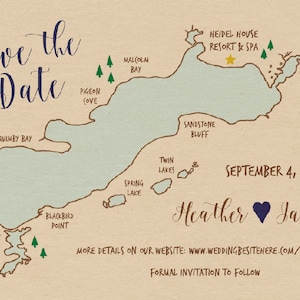 ve the
Date
HEIDEL HOUSE
RESORT & SPA
MALCOLM
BAY
PIGEON
COVE
QUIMBY BAY
SANDSTONE
BLUFF
TWIN
LAKES
SPRING
LAKE
BLACKBIRD
POINT
SEPTEMBER 4,
Heather Ja
MORE DETAILS ON OUR WEBSITE: WWW.WEDDINGBESITEHERE.COM/
FORMAL INVITATION TO FOLLOW